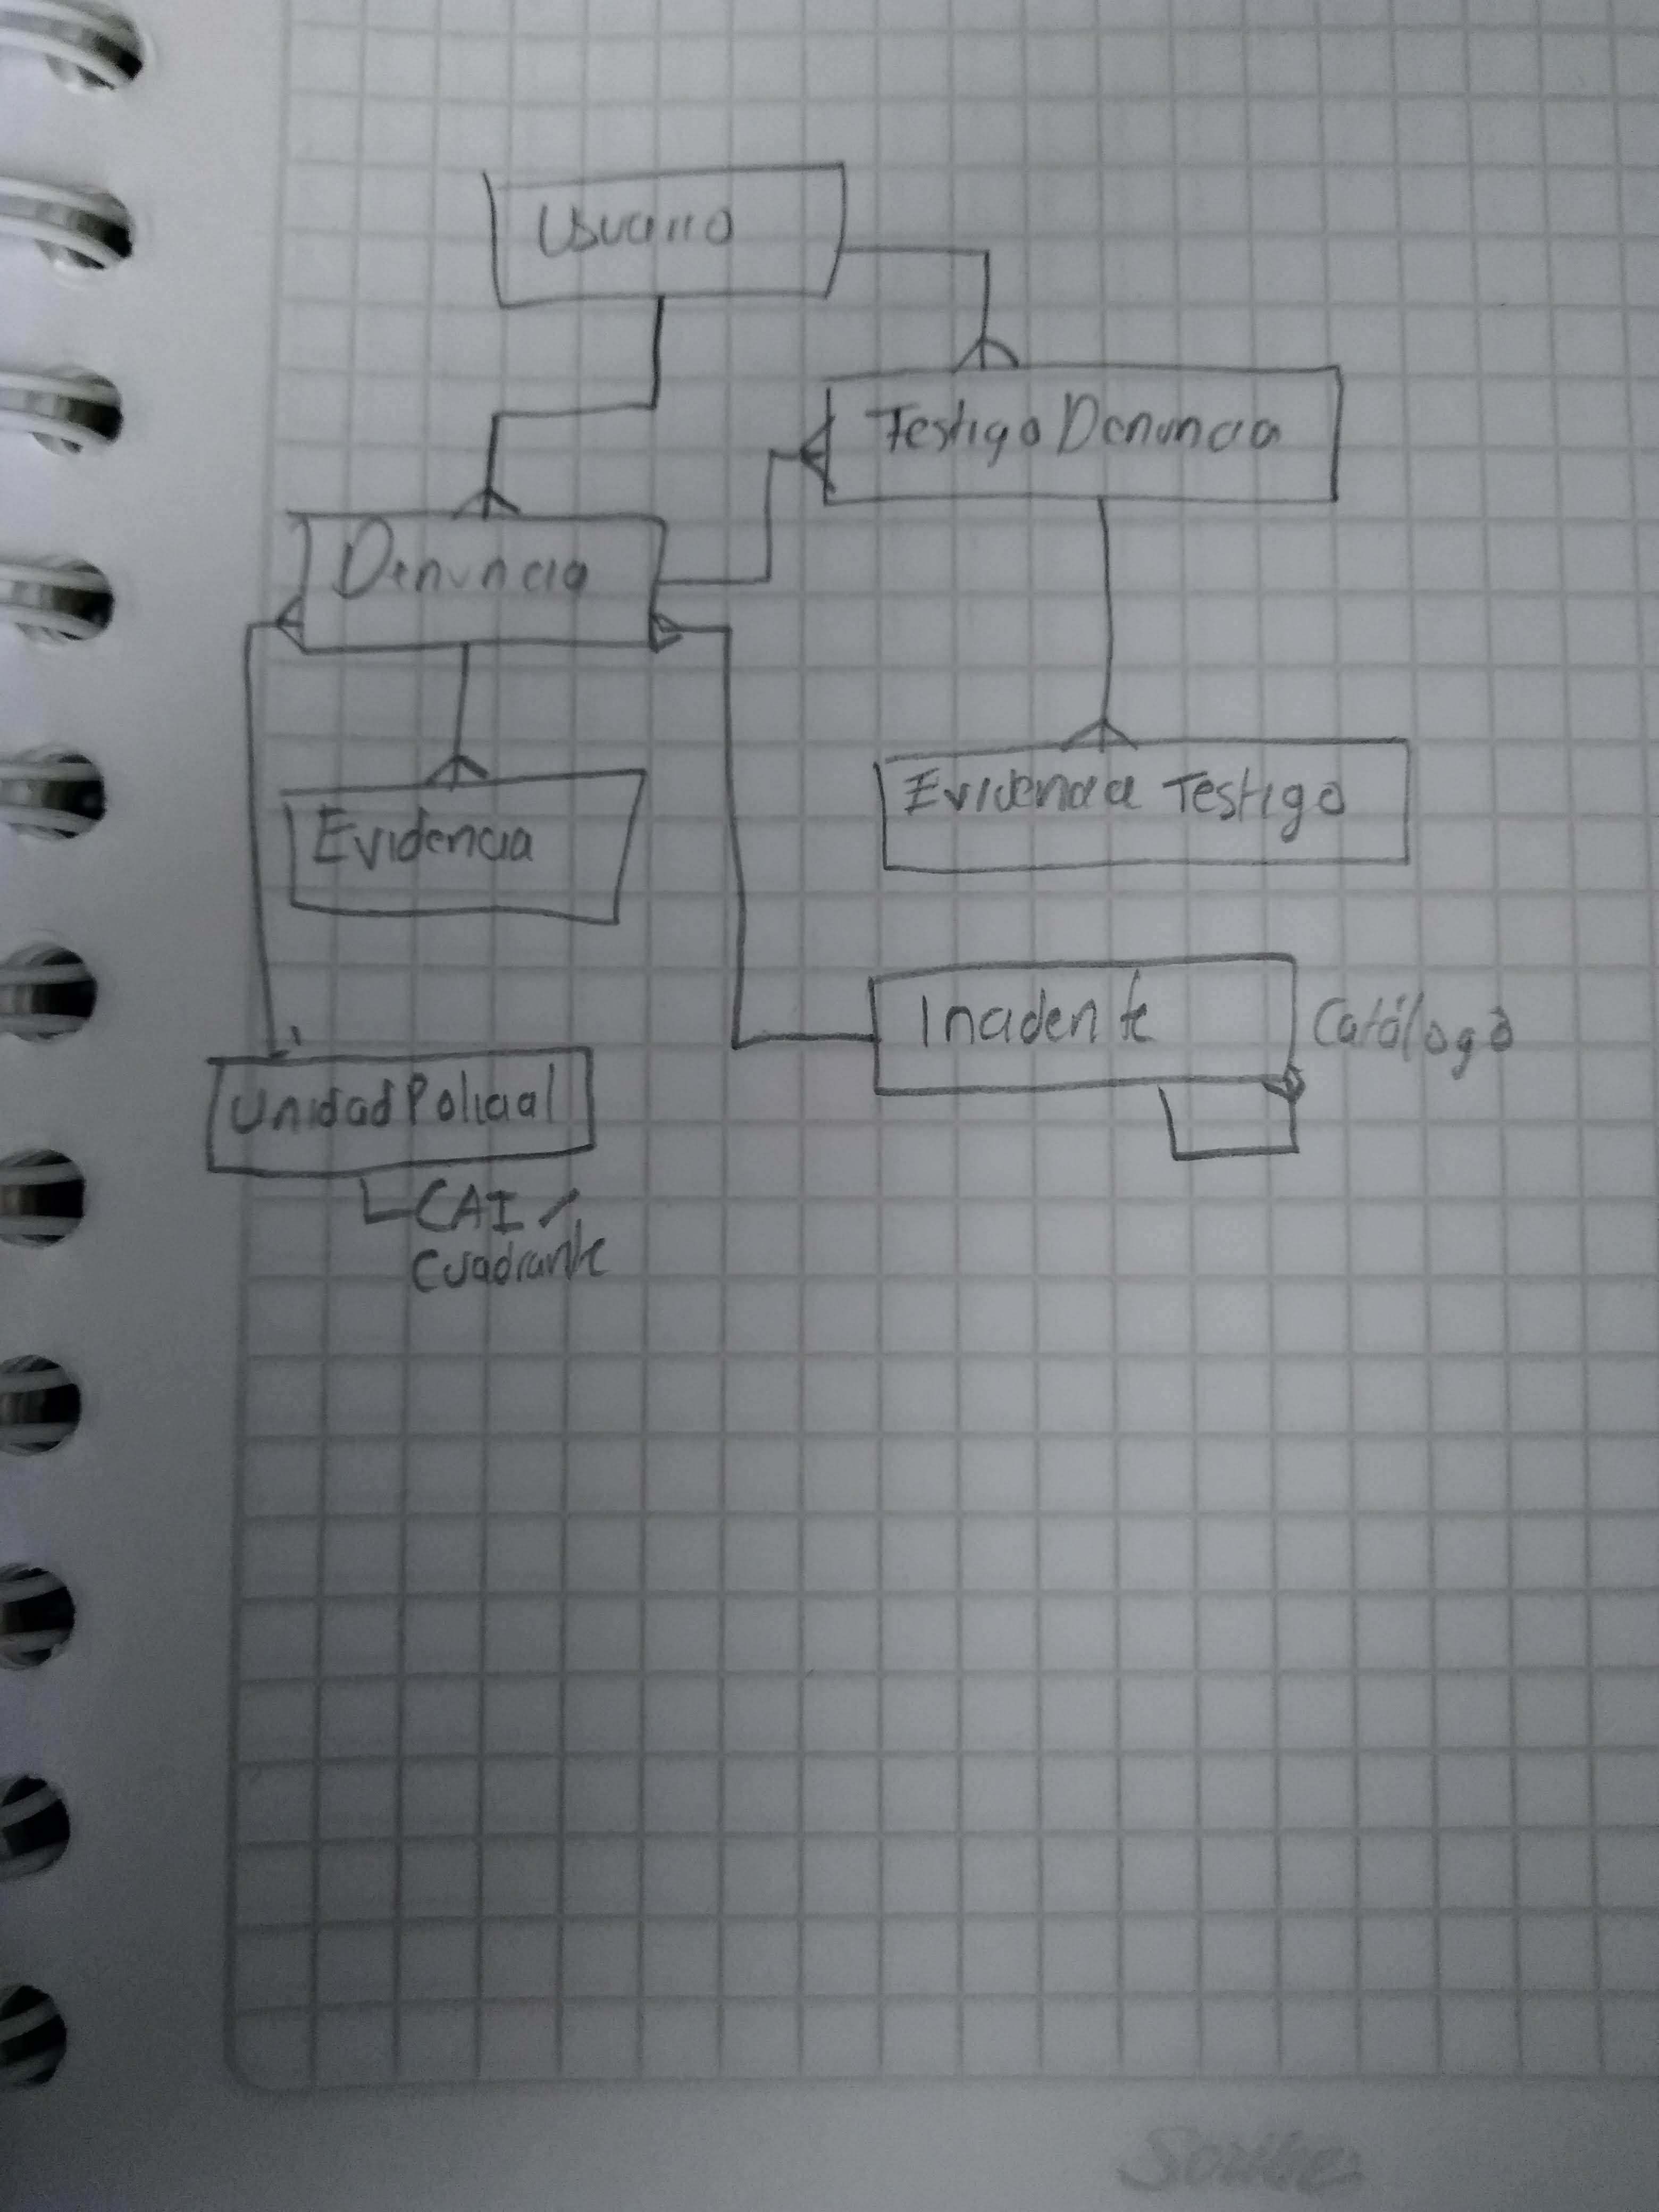 Usuario
Testigo Denuncia
Denuncia
Evidencia Testigo
Evidencia
Incidente Catálogo
Unidad Policial
CAI /
Cuadrante
Scribe